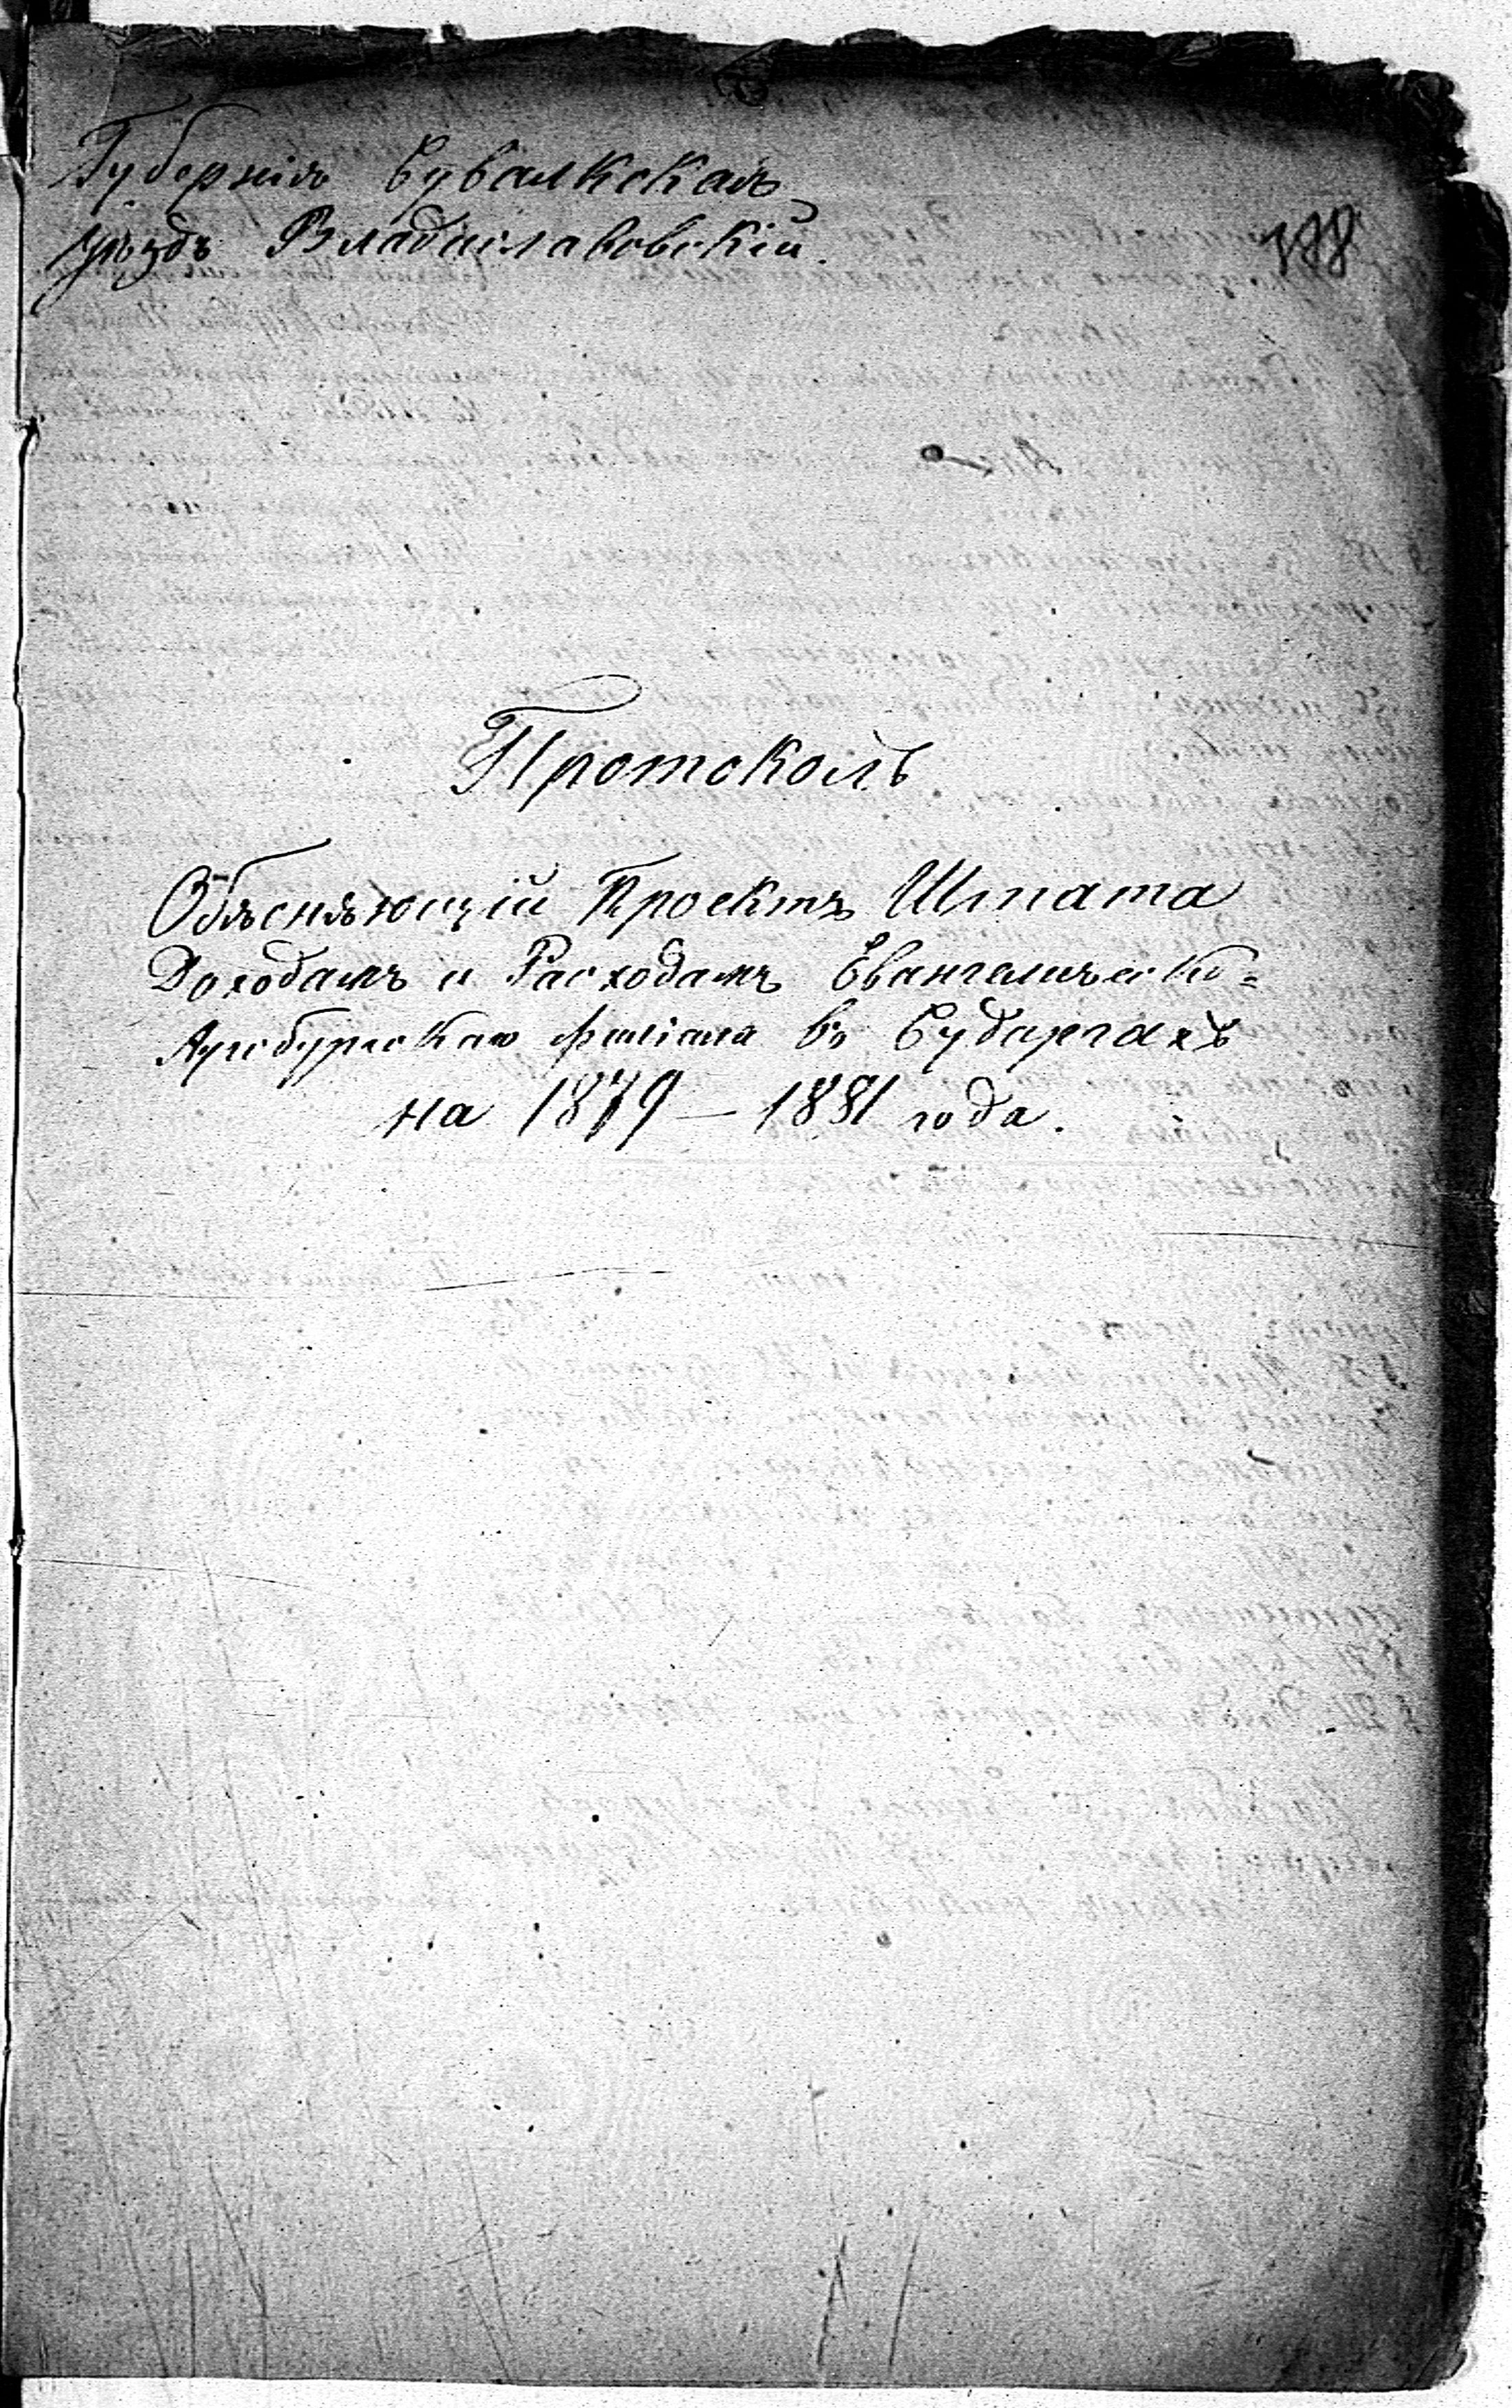 Губернія Сувалкская
уѣздъ Владиславовскій.
188
Протоколъ
Объясняющій Проектъ Штата
Доходамъ и Расходамъ Евангелическо=
Аугсбургскаго филіала въ Сударгахъ
на 1879 — 1881 года.